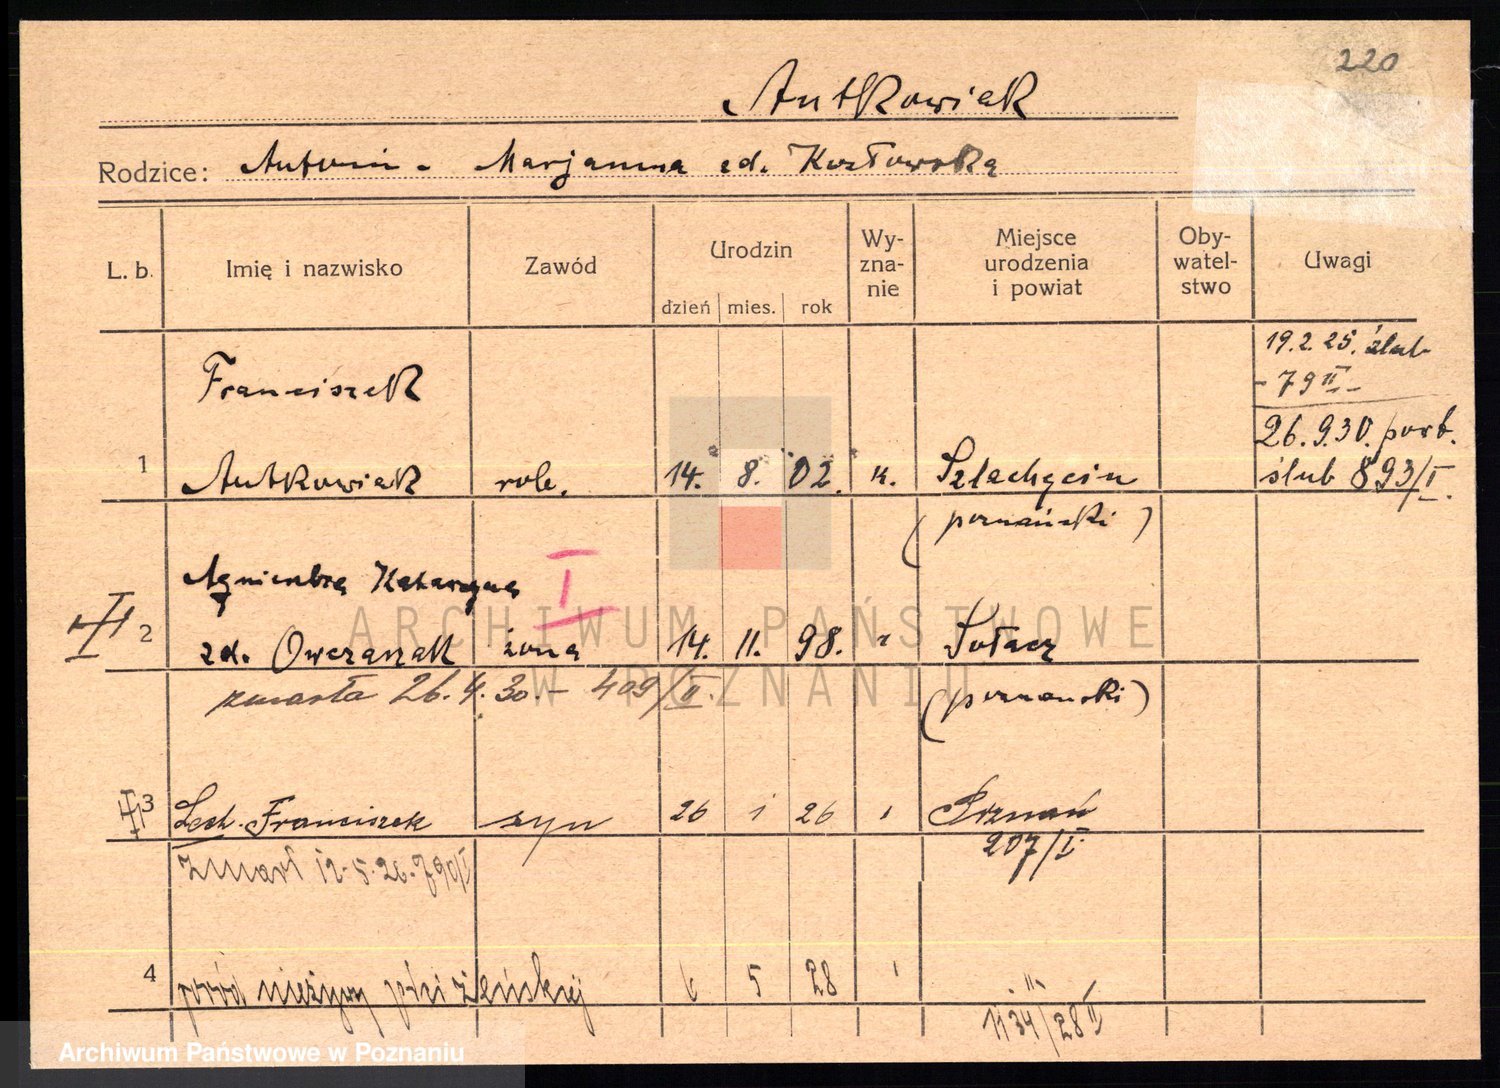 220
Antkowiak
Rodzice: Antoni - Marjanna zd. Kozłowska
L. b. Imię i nazwisko Zawód Urodzin dzień mies. rok Wy-zna-nie Miejsce urodzenia i powiat Oby-watel-stwo Uwagi
19.2.25. ślub
- 79 II -
Franciszek
26.9.30. pow.
1 Antkowiak rob. 14. 8. 02. k. Szlachęcin ślub 893/I.
(poznański)
Agnieszka Katarzyna I
2 zd. Owczarzak żona 14. 11. 98. " Sołacz
zmarła 26.4.30.- 409/II. (poznański)
3 Lech Franciszek syn 26 1 26 Poznań
207/I
zmarł 12.5.26. 790/I
4 poród nieżywy płci żeńskiej 6 5 28 "
1134/28 II
ARCHIWUM PAŃSTWOWE
W POZNANIU
Archiwum Państwowe w Poznaniu